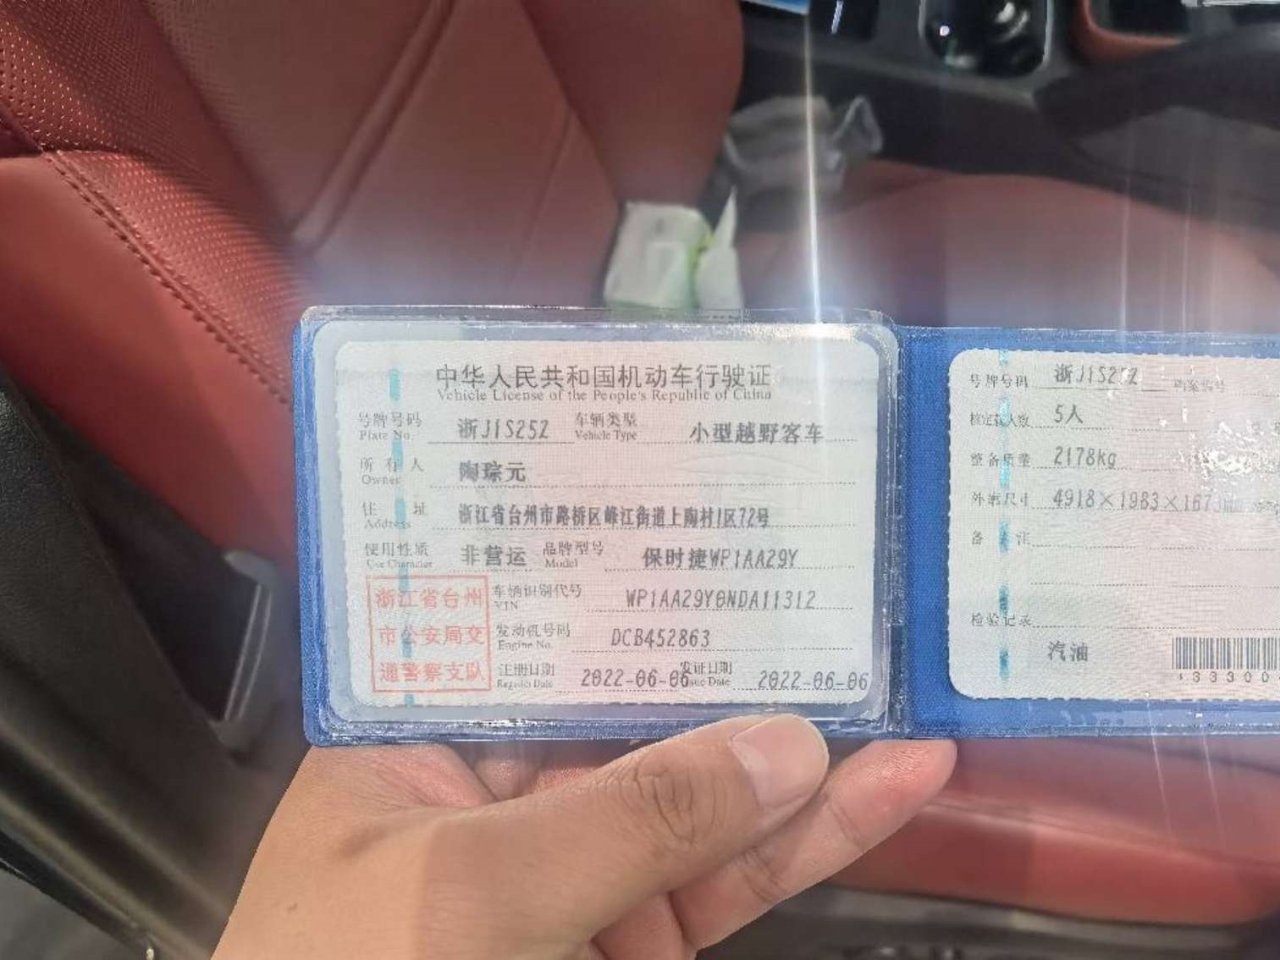 中华人民共和国机动车行驶证
Vehicle License of the People's Republic of China
号牌号码 浙J1S25Z 车辆类型 小型越野客车
Plate No. Vehicle Type
所有人 陶琮元
Owner
住址 浙江省台州市路桥区峰江街道上陶村1区72号
Address
使用性质 非营运 品牌型号 保时捷WP1AA29Y
Use Character Model
浙江省台州
市公安局交
通警察支队
车辆识别代号 WP1AA29Y6NDA11312
VIN
发动机号码 DCB452863
Engine No.
注册日期 2022-06-06 发证日期 2022-06-06
Register Date Issue Date
号牌号码 浙J1S25Z 档案编号
核定载人数 5人
整备质量 2178kg
外廓尺寸 4918×1983×1673
备注
检验记录
汽油